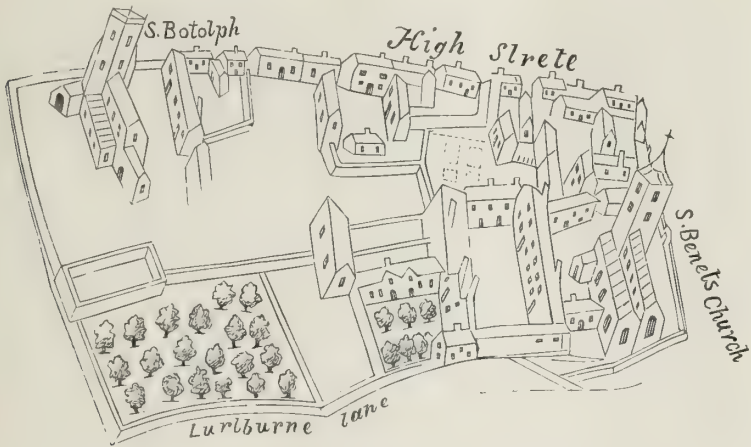 S. Botolph
High Slrete
S. Benets Church
Lurlburne lane